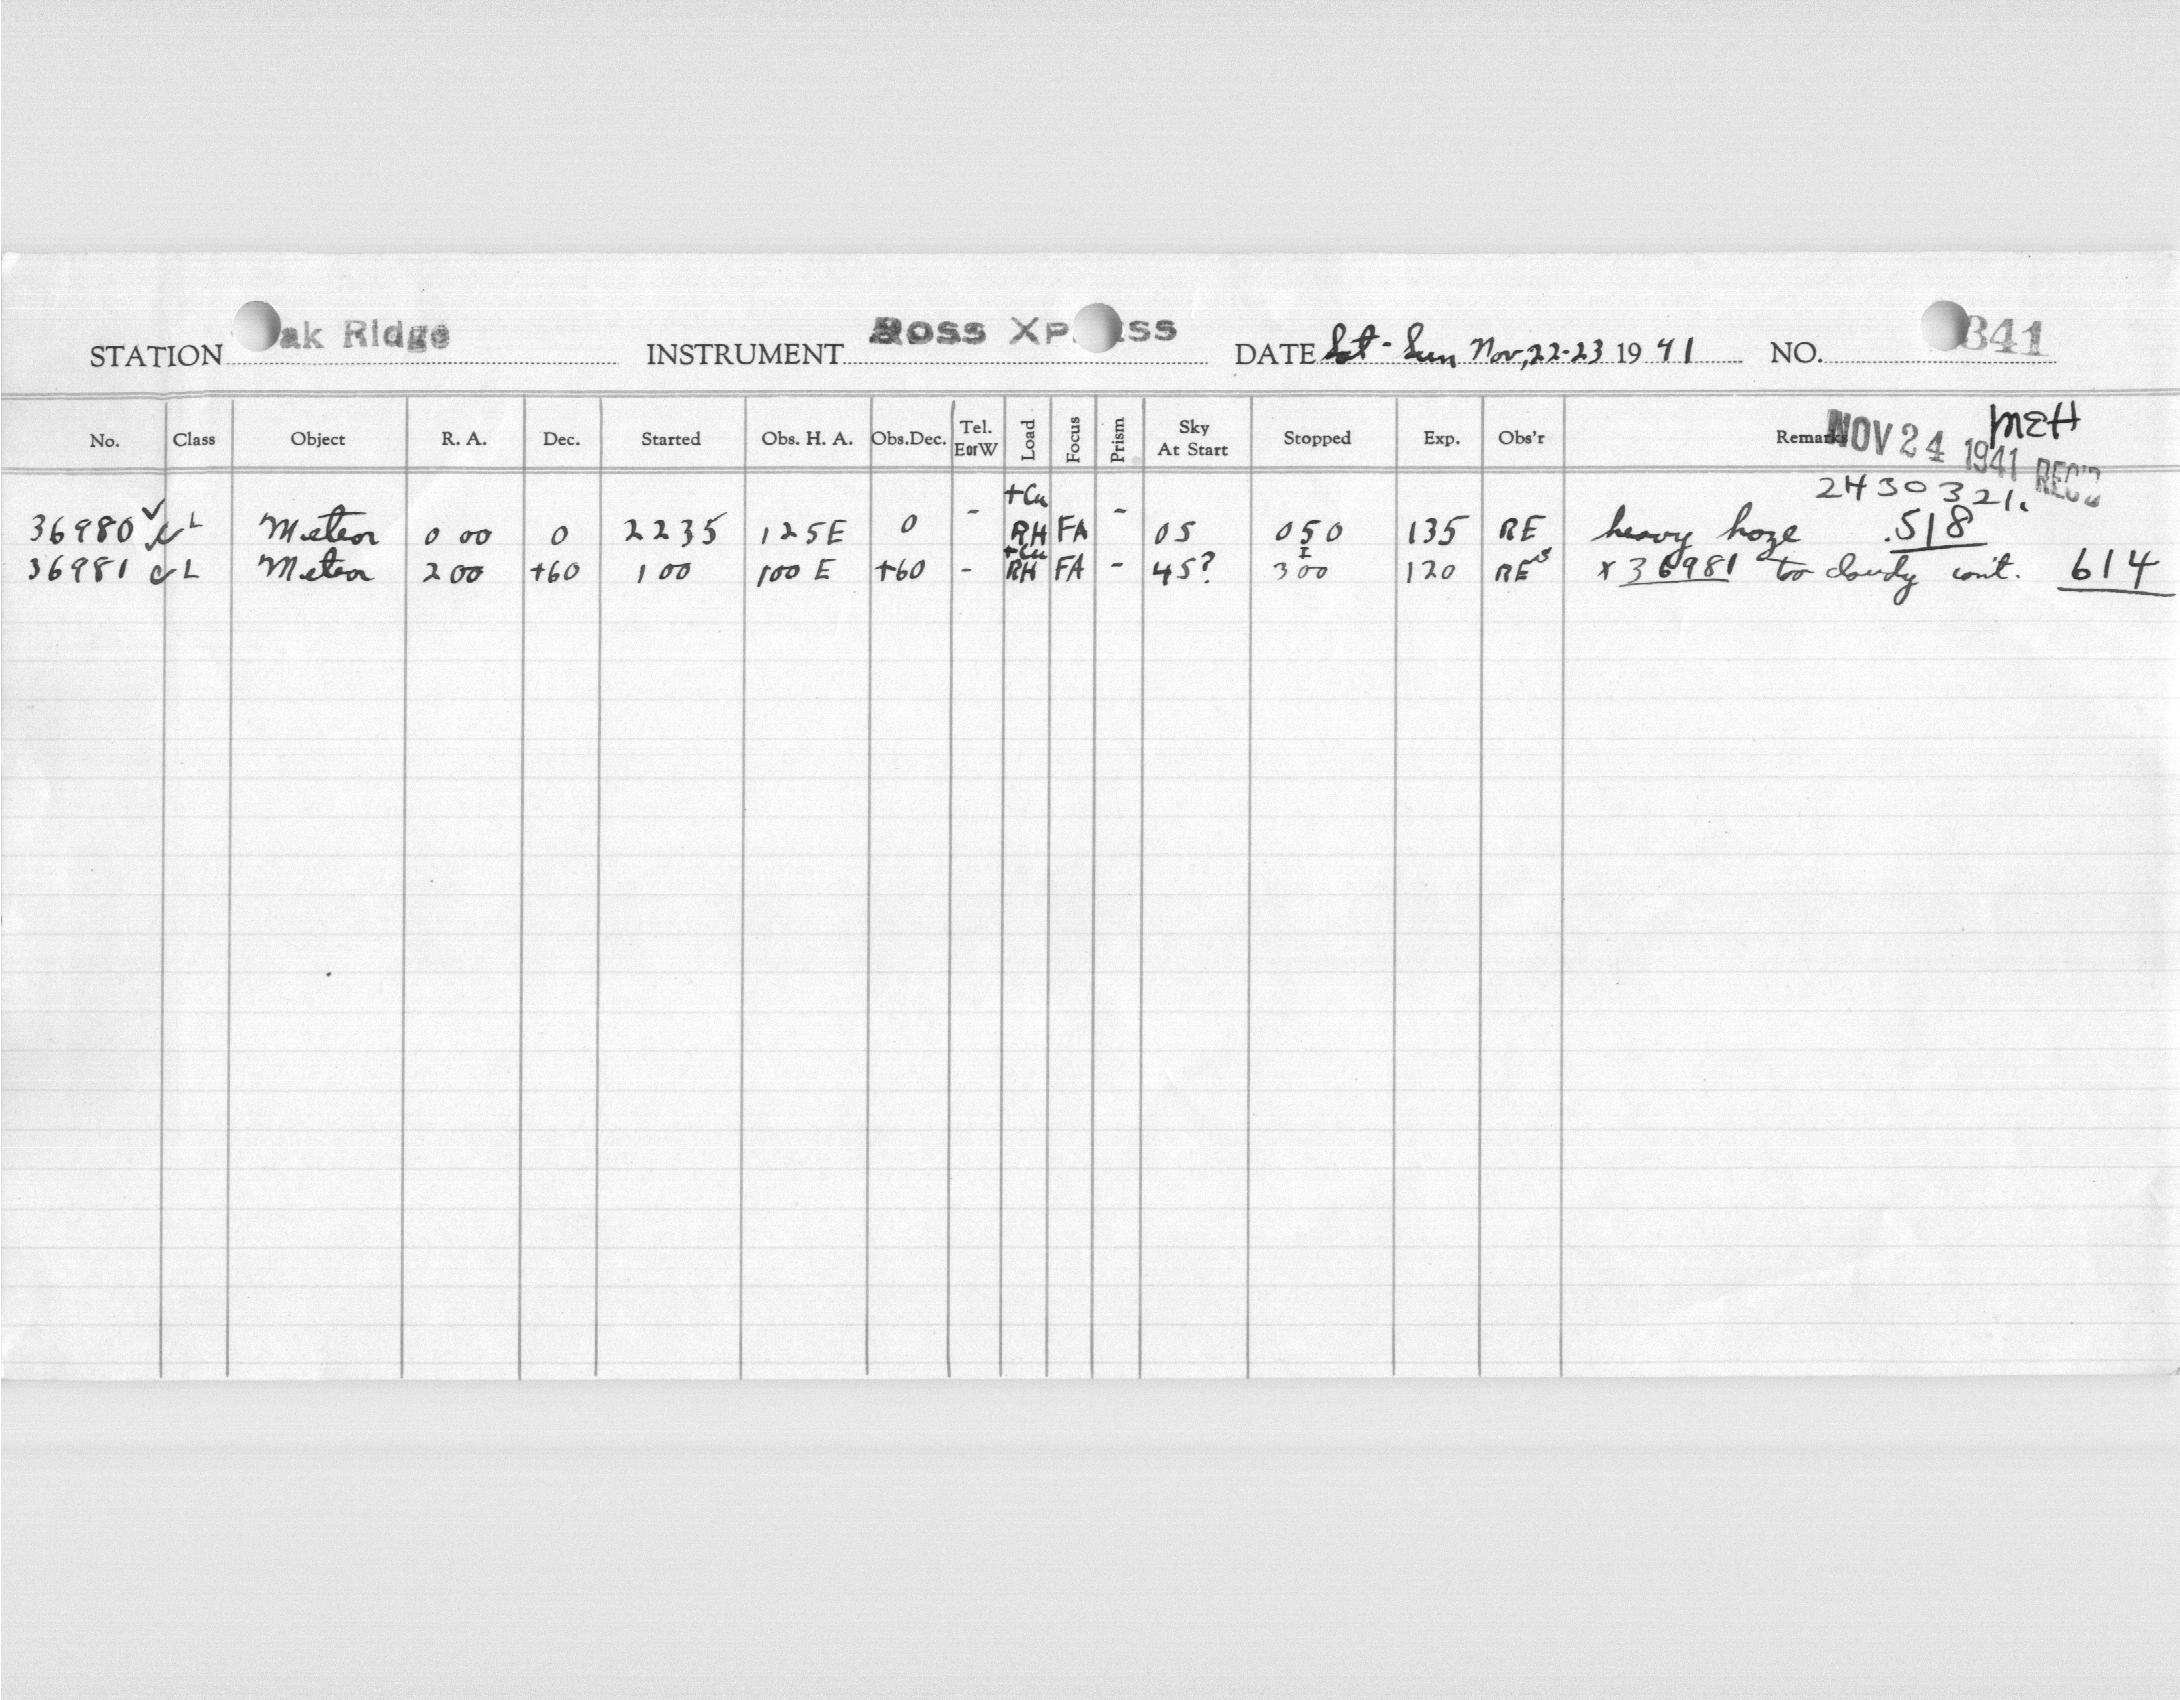 STATION ak Ridge INSTRUMENT Ross Xp ss DATE Sat - Sun Nov, 22-23 19 41 NO. 841
No. Class Object R. A. Dec. Started Obs. H. A. Obs.Dec. Tel. E or W Load Focus Prism Sky At Start Stopped Exp. Obs'r Remarks
MEH
NOV 24 1941 REC'D
2430321.
36980 ✓ L Meteor 0 00 0 2235 125E 0 - +Cu RH FA - 05 050 135 RE heavy haze .518
36981 L Meteor 200 +60 100 100 E +60 - +Cu RH FA - 45? 300 120 RE x 36981 too cloudy con't. 614